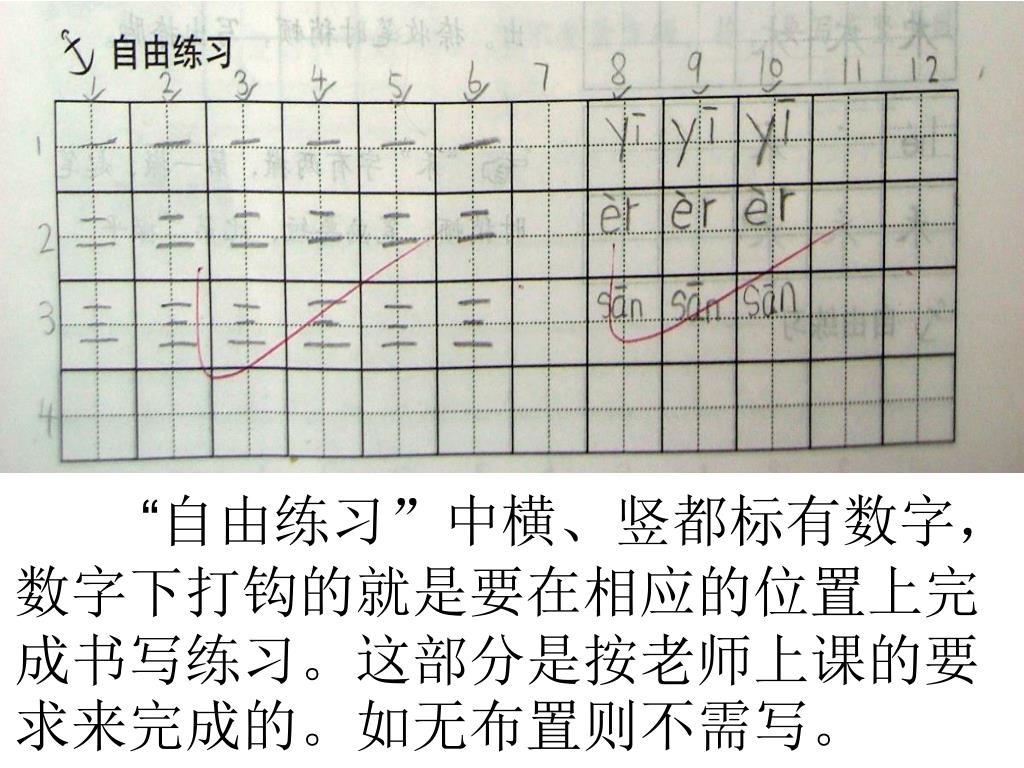 自由练习
1 2 3 4 5 6 7 8 9 10 11 12
1 一 一 一 一 一 一 yī yī yī
2 二 二 二 二 二 二 èr èr èr
3 三 三 三 三 三 三 sān sān sān
4
“自由练习”中横、竖都标有数字，
数字下打钩的就是要在相应的位置上完
成书写练习。这部分是按老师上课的要
求来完成的。如无布置则不需写。